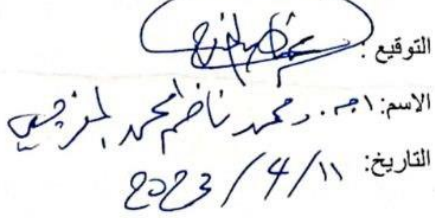 التوقيع:
الاسم: ا.م.د محمد ناظم محمد
التاريخ: ١١/4/2023